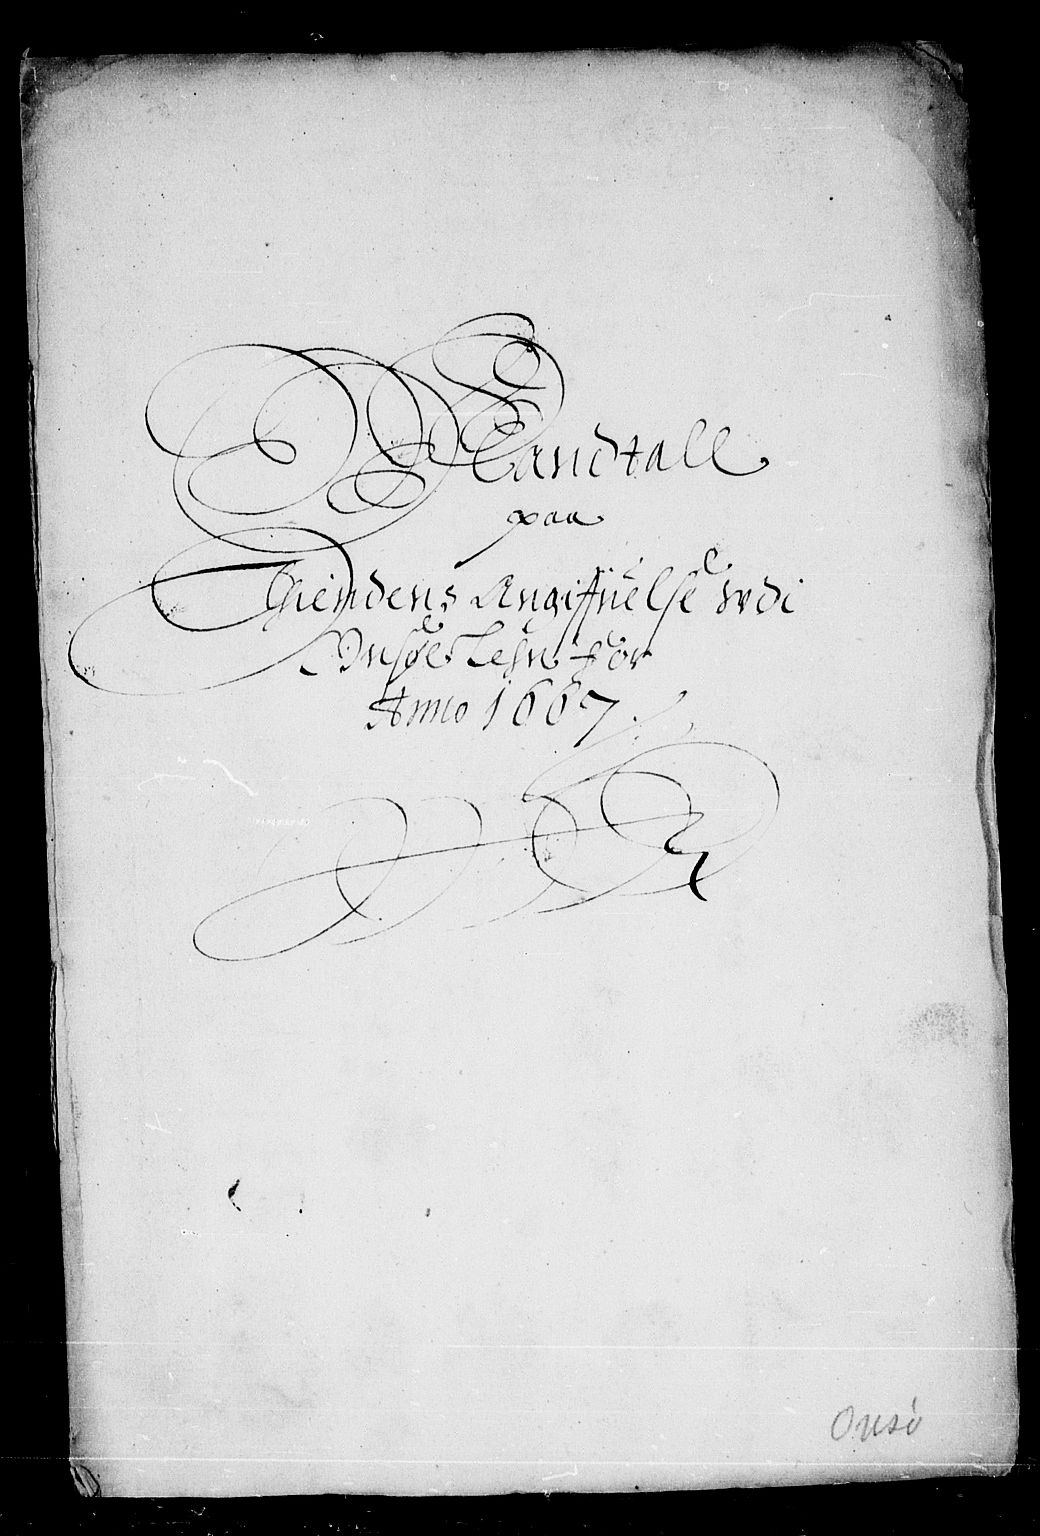 Mandtall
paa
Thiendens Angiffuelse vdi
Onsøe Lehn for
Anno 1667.
Onsö